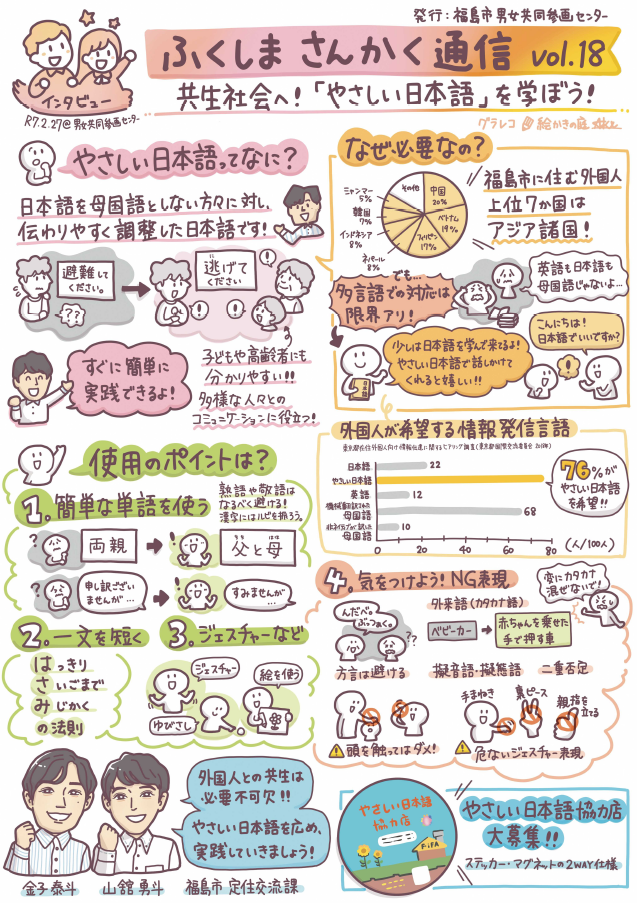 発行：福島市男女共同参画センター
ふくしまさんかく通信 vol.18
インタビュー
R7.2.27@男女共同参画センター
共生社会へ！「やさしい日本語」を学ぼう！
グラレコ 絵かきの庭
やさしい日本語ってなに？
日本語を母国語としない方々に対し、
伝わりやすく調整した日本語です！
避難して
ください。
??
逃げて
ください
！
！
！
すぐに簡単に
実践できるよ！
子どもや高齢者にも
分かりやすい!!
多様な人々との
コミュニケーションに役立つ！
なぜ必要なの？
その他
中国
20%
ベトナム
19%
フィリピン
17%
ネパール
8%
インドネシア
8%
韓国
7%
ミャンマー
5%
福島市に住む外国人
上位7か国は
アジア諸国！
でも…
多言語での対応は
限界アリ！
英語も日本語も
母国語じゃないよ…
少しは日本語を学んで来てるよ！
やさしい日本語で話しかけて
くれると嬉しい!!
こんにちは！
日本語でいいですか？
！
外国人が希望する情報発信言語
日本語
22
やさしい日本語
英語
12
機械翻訳された
母国語
68
非ネイティブが訳した
母国語
10
0 20 40 60 80 (人/100人)
76%が
やさしい日本語
を希望!!
使用のポイントは？
1. 簡単な単語を使う
熟語や敬語は
なるべく避ける！
漢字にはルビを振ろう。
?
両親
！
父と母
?
申し訳ござい
ませんが…
！
すみませんが
…
2. 一文を短く
はっきり
さいごまで
みじかく
の法則
3. ジェスチャーなど
ジェスチャー
絵を使う
ゆびさし
4. 気をつけよう！NG表現
変にカタカナ
混ぜないで！
んだべ。
ぶっつぁく。
??
方言は避ける
外来語(カタカナ語)
ベビーカー
赤ちゃんを乗せた
手で押す車
擬音語・擬態語
二重否定
頭を触ってはダメ！
手まねき
裏ピース
親指を
立てる
危ないジェスチャー表現
外国人との共生は
必要不可欠!!
やさしい日本語を広め、
実践していきましょう！
金子泰斗
山舘勇斗
福島市定住交流課
やさしい日本語
協力店
FiFA
やさしい日本語協力店
大募集!!
ステッカー・マグネットの2WAY仕様